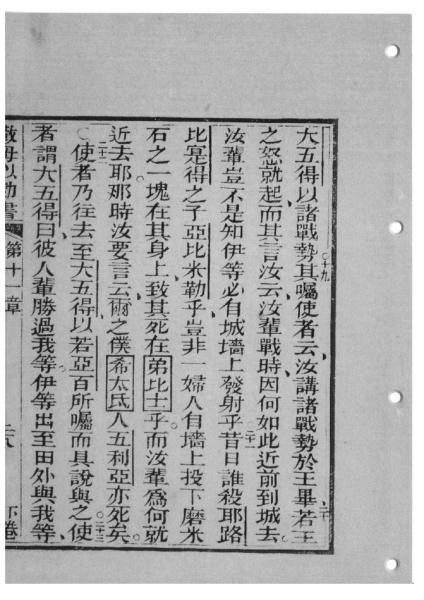 大五得以諸戰勢其囑使者云汝講諸戰勢於王畢若王
之怒就起而其言汝云汝輩戰時因何如此近前到城去
汝輩豈不是知伊等必有城墻上發射乎昔日誰殺耶路
比寔得之子亞比米勒乎豈非一婦人自墻上投下磨米
石之一塊在其身上致其死在弟比士乎而汝輩為何就
近去耶那時汝要言云爾之僕希太氏人五利亞亦死矣
○使者乃往去至大五得以若亞百所囑而具說與之使
者謂大五得曰彼人輩勝過我等伊等出至田外與我等
撒母以勒書 第十一章 下卷